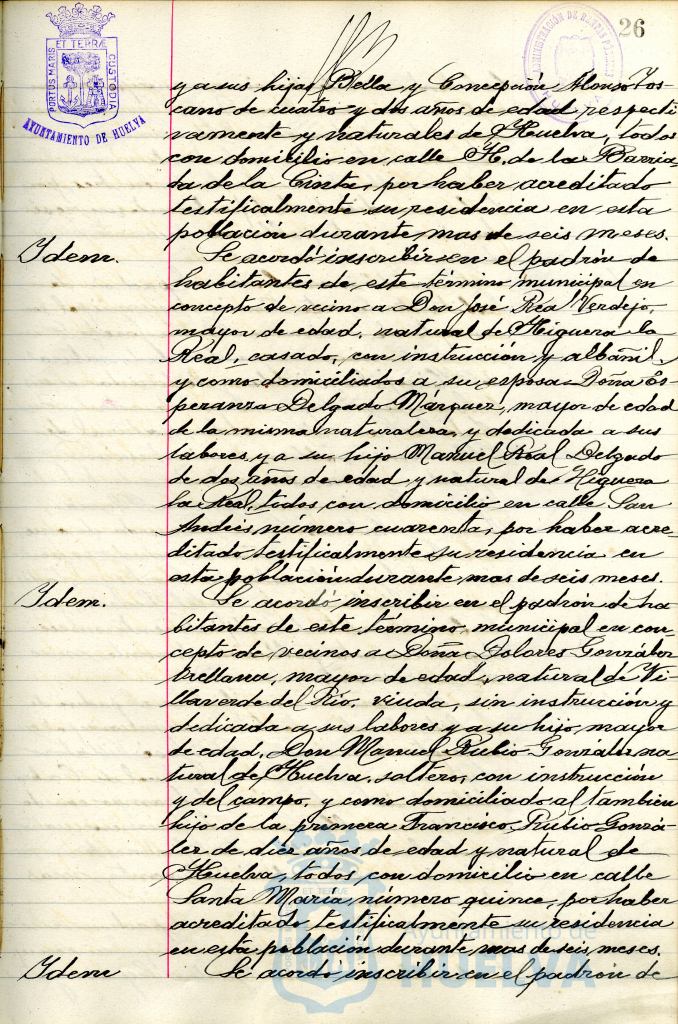 26
PORTUS MARIS
ET TERRÆ
CUSTODIA
AYUNTAMIENTO DE HUELVA
ADMINISTRACIÓN DE RENTAS
y a sus hijas Bella y Concepción Alonso Tos-
cano de cuatro y dos años de edad respecti
vamente y naturales de Huelva, todos
con domicilio en calle H. de la Barria-
da de la Cinta, por haber acreditado
testificalmente su residencia en esta
población durante mas de seis meses.
Idem. Se acordó inscribir en el padrón de
habitantes de este término municipal en
concepto de vecino a Don José Real Verdejo,
mayor de edad, natural de Higuera la
Real, casado, con instrucción y albañil,
y como domiciliados a su esposa Doña Es-
peranza Delgado Márquez, mayor de edad
de la misma naturaleza, y dedicada a sus
labores, y a su hijo Manuel Real Delgado
de dos años de edad y natural de Higuera
la Real, todos con domicilio en calle San
Andrés, número cuarenta, por haber acre-
ditado testificalmente su residencia en
esta población durante mas de seis meses.
Idem. Se acordó inscribir en el padrón de ha
bitantes de este término municipal en con-
cepto de vecinos a Doña Dolores González
Orellana, mayor de edad, natural de Vi-
llaverde del Río, viuda, sin instrucción y
dedicada a sus labores y a su hijo, mayor
de edad, Don Manuel Rubio González na-
tural de Huelva, soltero, con instrucción
y del campo, y como domiciliado al tambien
hijo de la primera Francisco Rubio Gonzá-
lez de diez años de edad y natural de
Huelva, todos con domicilio en calle
Santa María, número quince, por haber
acreditado testificalmente su residencia
en esta población durante mas de seis meses.
Idem Se acordó inscribir en el padrón de
Ayuntamiento de
HUELVA